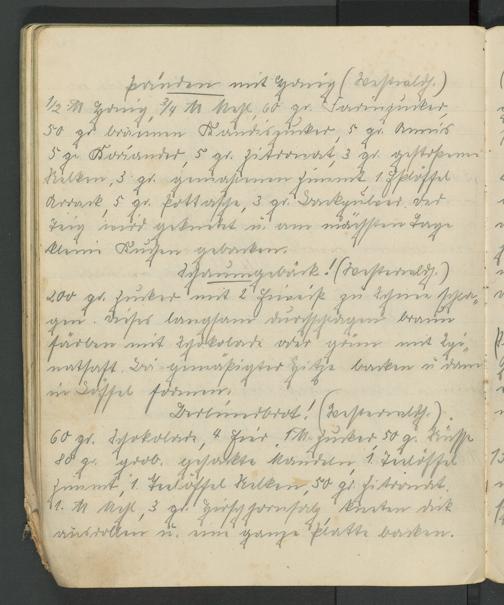 Printen mit Honig (Westerwldh.)
1/2 M Honig, 3/4 M Mehl, 60 gr. Farinzucker,
50 gr braunen Kandiszucker, 5 gr. Anniis
5 gr Koriander, 5 gr. Zitronat, 3 gr. gestoßene
Nelken, 3 gr. gemahlenen Zimmt 1 Eßlöffel
Arrack, 5 gr. Pottasche, 3 gr. Backpulver der
Teig wird geknetet u. am nächsten Tage
kleine Kuchen gebacken.
Schaumgebäck! (Westerwldh.)
200 gr. Zucker mit 2 Eiweiß zu Schnee schla-
gen. Dieses langsam durchschlagen braun
färben mit Schokolade oder grün mit Spi-
natsaft. Bei gemäßigter Hitze backen u dann
in Löffel formen.
Berlinerbrot! (Westerwaldh.).
60 gr. Schokolade, 4 Eier, 1 M. Zucker, 50 gr. Nüsse
80 gr. grob. gehackte Mandeln, 1 Teelöffel
Zimmt, 1 Teelöffel Nelken, 50 gr. Zitronat,
1. M Mehl, 3 gr. Hirschhornsalz, kneten dick
ausrollen u. eine ganze Platte backen.